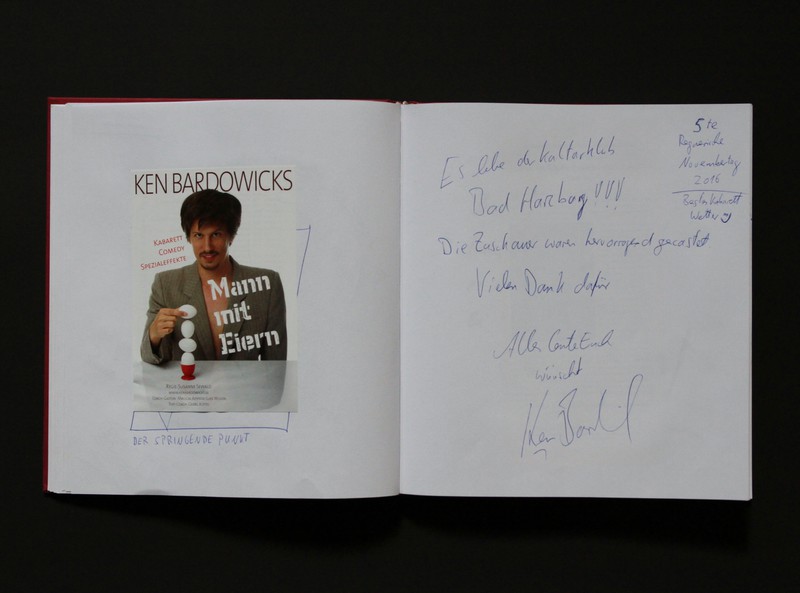 KEN BARDOWICKS
KABARETT
COMEDY
SPEZIALEFFEKTE
Mann
mit
Eiern
DER SPRINGENDE PUNKT
5te
Regnerische
Novembertag
2016
Wetter
Es lebe der Kulturklub
Bad Harzburg!!!
Die Zuschauer waren hervorragend gecastet
Vielen Dank dafür
Alles Gute Euch
wünscht
Ken Bardowicks